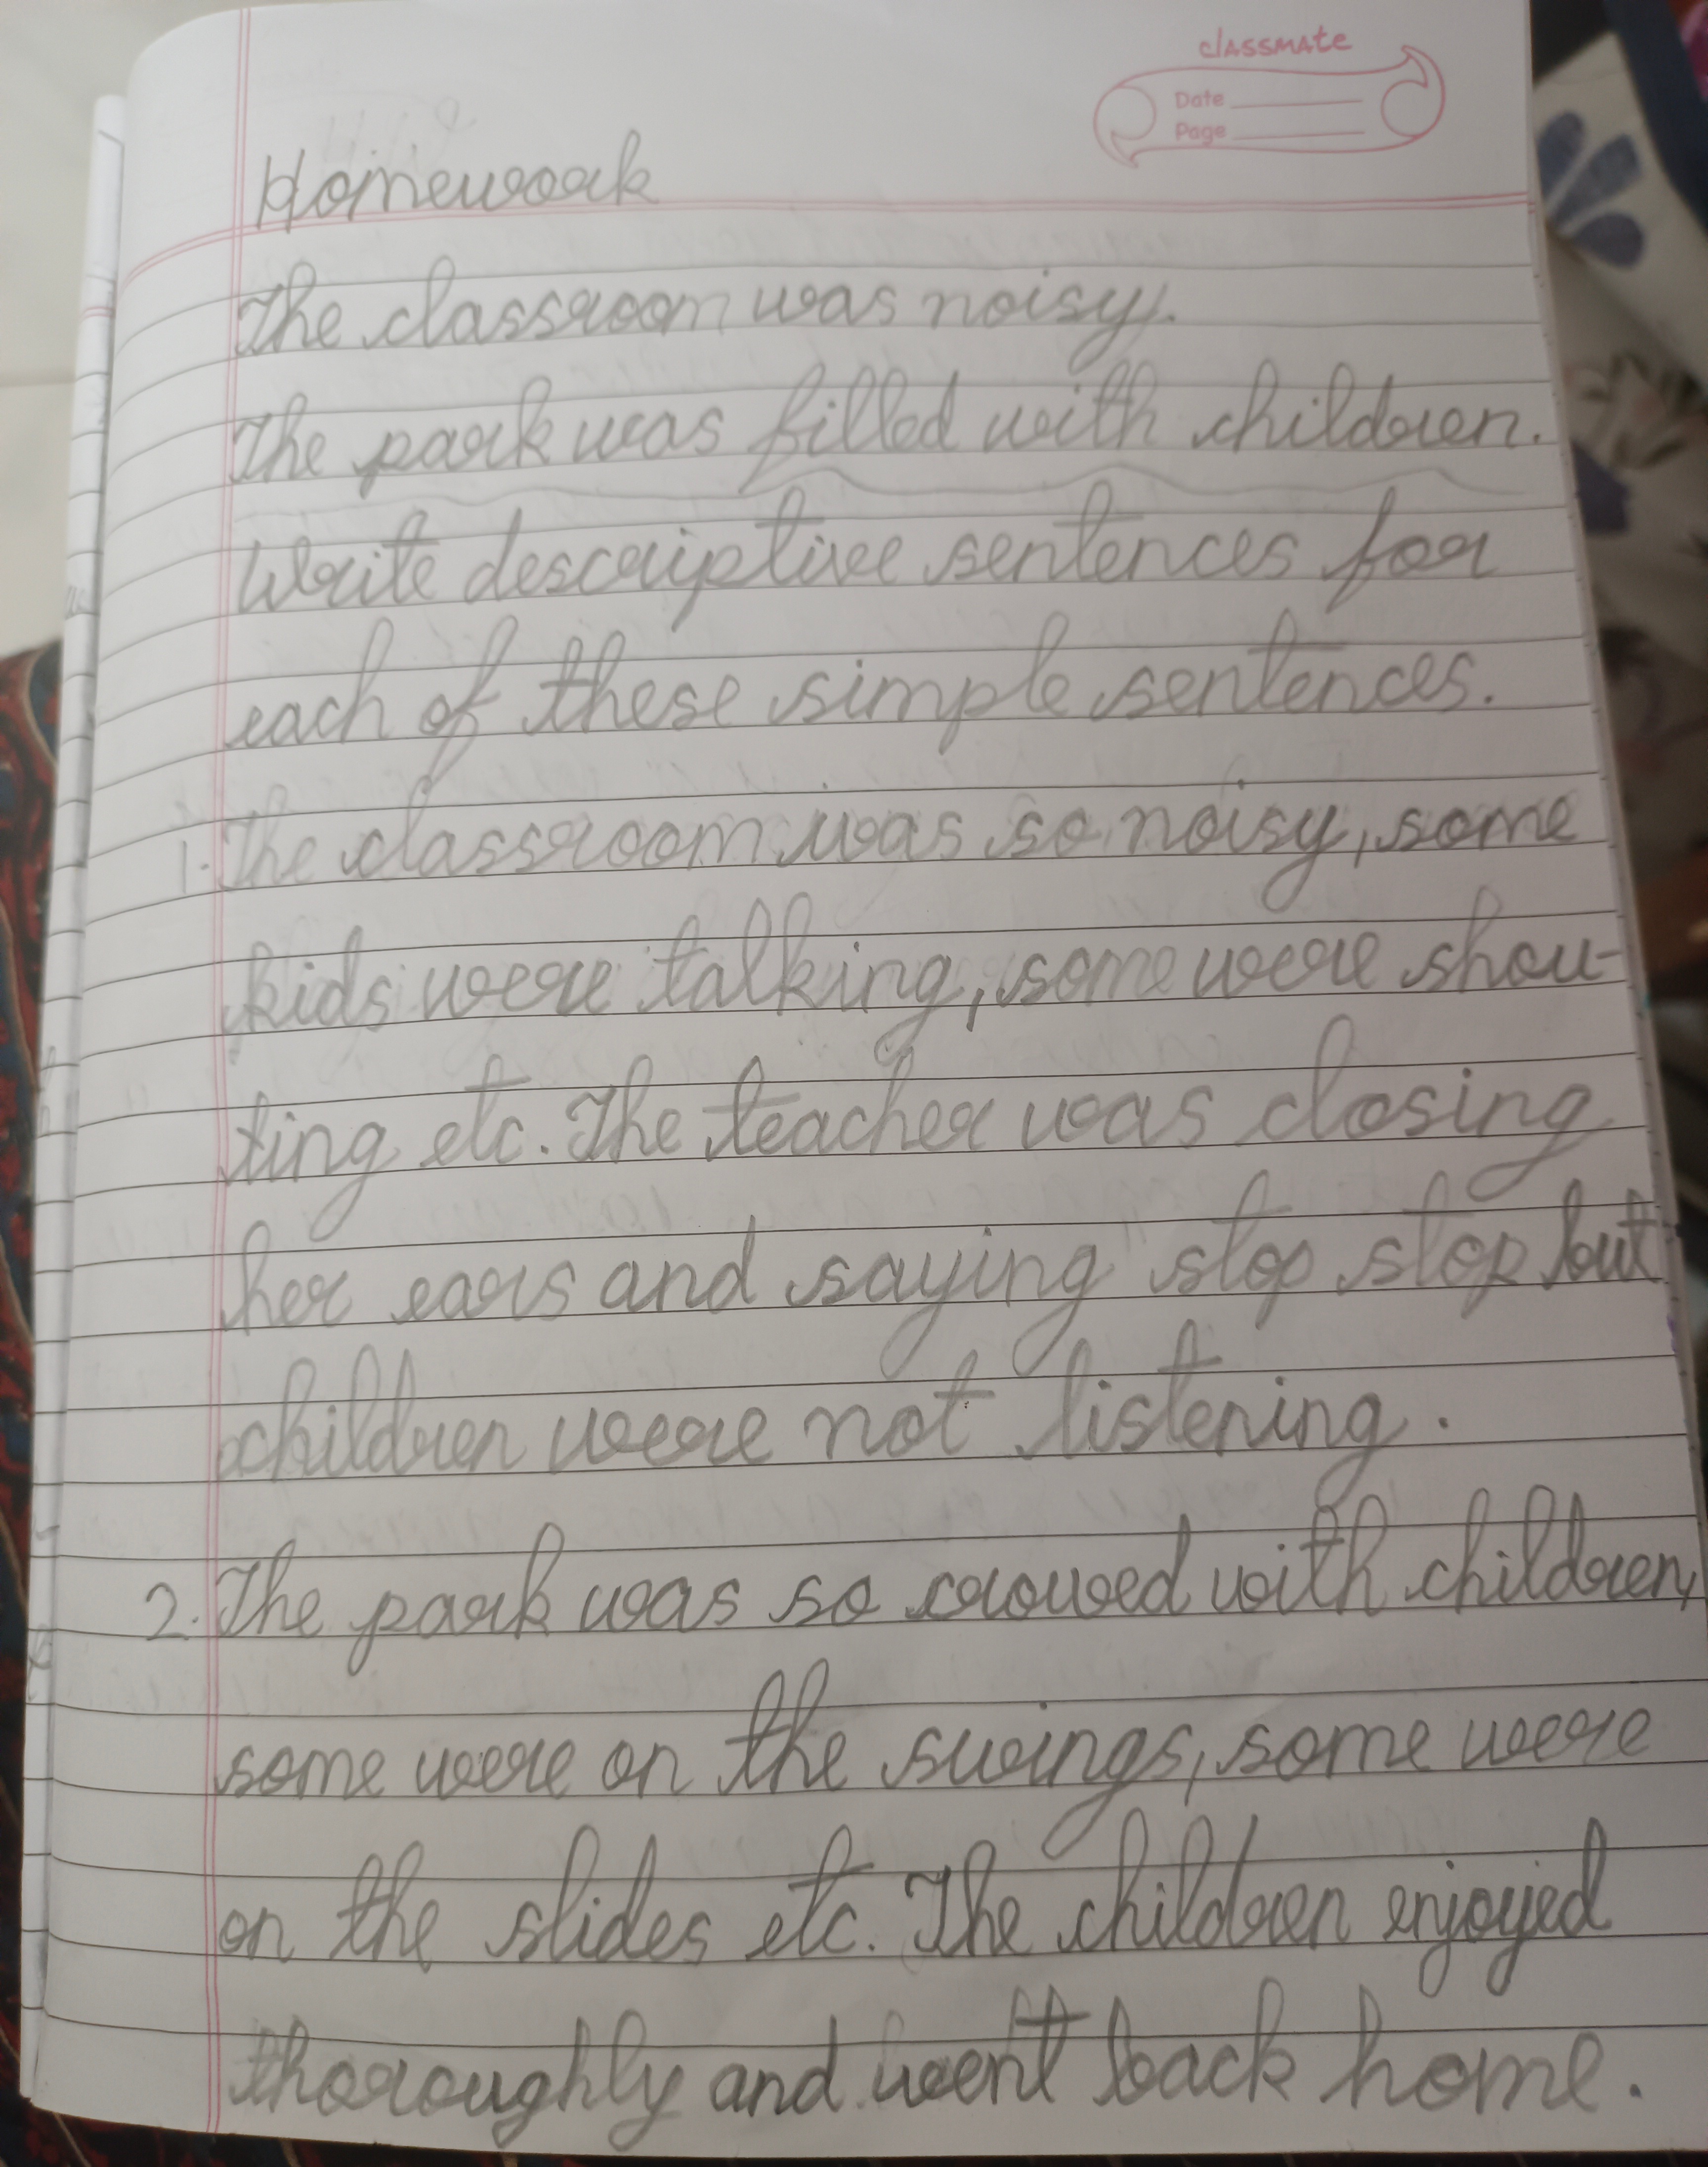 classmate
Date
Page
Homework
The classroom was noisy.
The park was filled with children.
Write descriptive sentences for
each of these simple sentences.
1. The classroom was so noisy, some
kids were talking, some were shou-
ting etc. The teacher was closing
her ears and saying "stop stop but
children were not listening.
2. The park was so crowed with children,
some were on the swings, some were
on the slides etc. The children enjoyed
thoroughly and went back home.